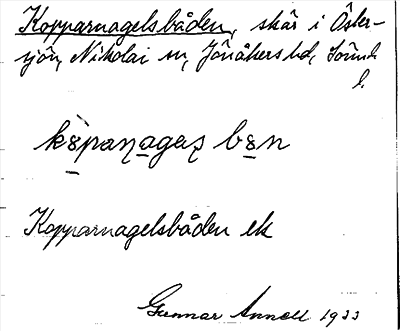 Kopparnagelsbåden, skär i Öster-
sjön, Nikolai sn, Jönåkers hd, Söderml
l.
Kopparnagelsbåden ek
Gunnar Annell 1933